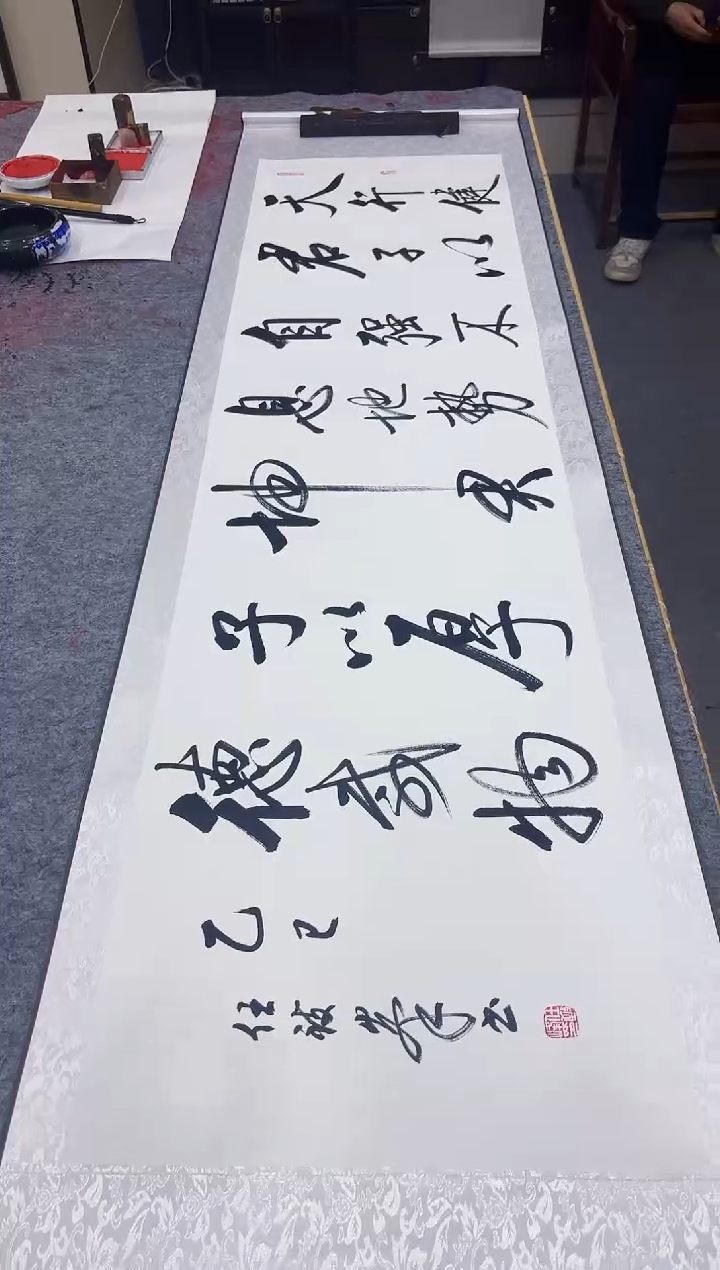 天行健
君子以
自强不
息地势
坤君
子以厚
德载物
乙巳
任 书